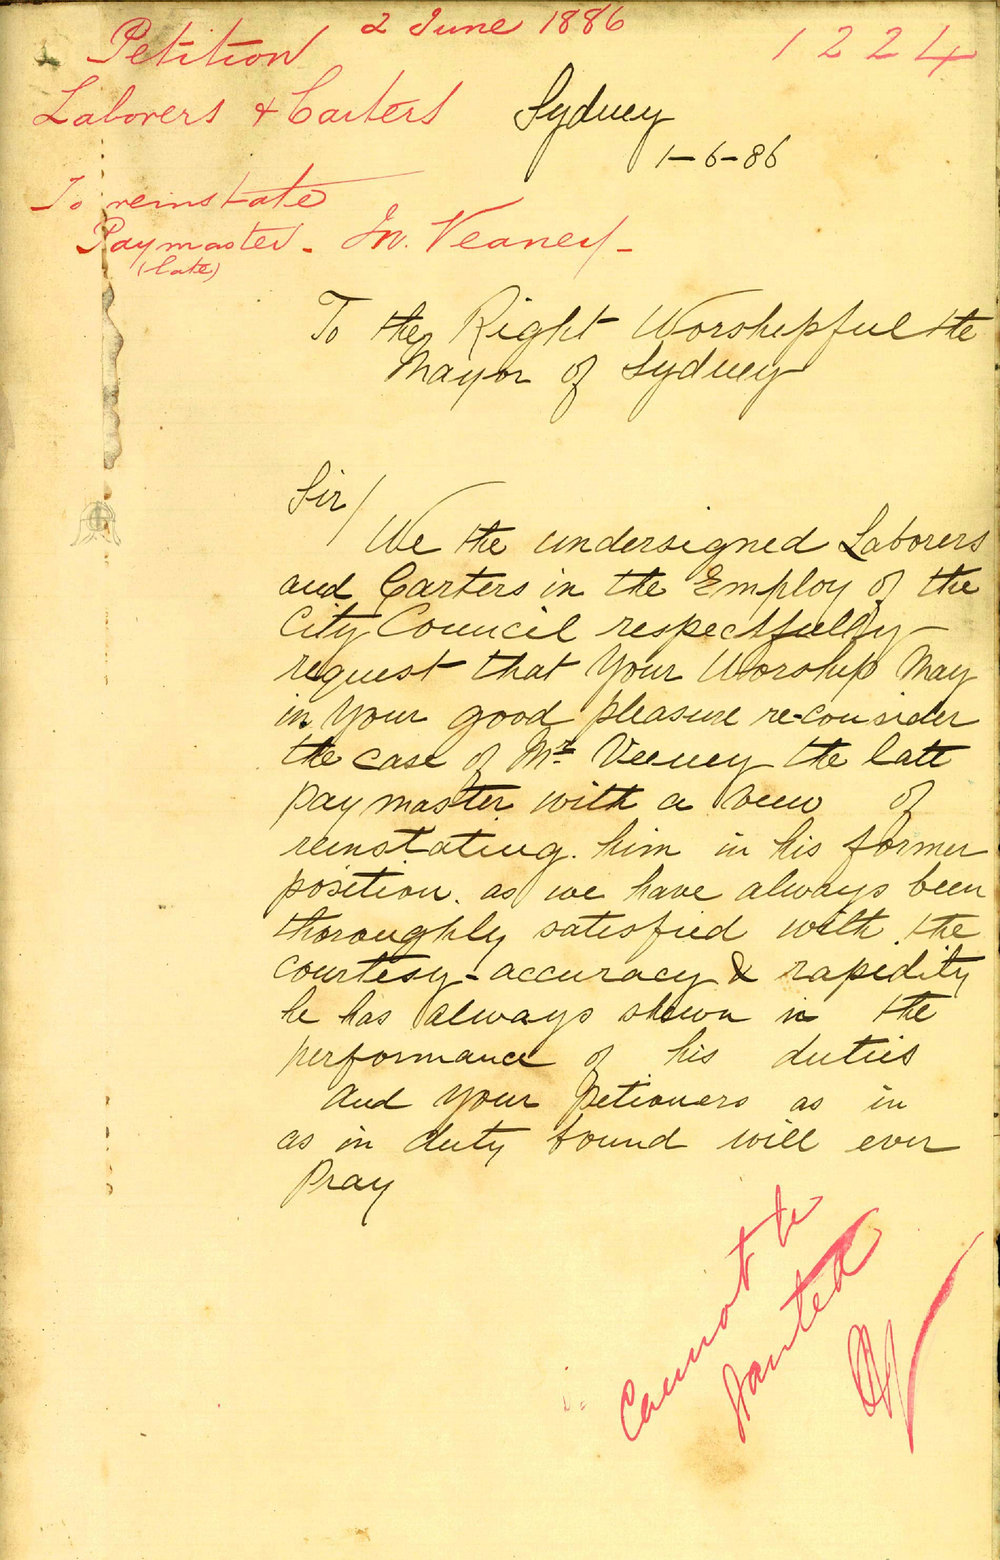 2 June 1886
1224
Petition
Laborers & Carters
Sydney
1-6-86
To reinstate
Paymaster - Jn. Veaney -
(late)
To the Right Worshipful the
Mayor of Sydney
Sir/
We the undersigned Laborers
and Carters in the Employ of the
City Council respectfully
request that Your Worship May
in Your good pleasure re-consider
the case of Mr Veeney the late
paymaster with a view of
reinstating him in his former
position. as we have always been
thoroughly satisfied with the
courtesy - accuracy & rapidity
he has always shewn in the
performance of his duties
And your petioners as in
as in duty bound will ever
Pray
Cannot be
granted